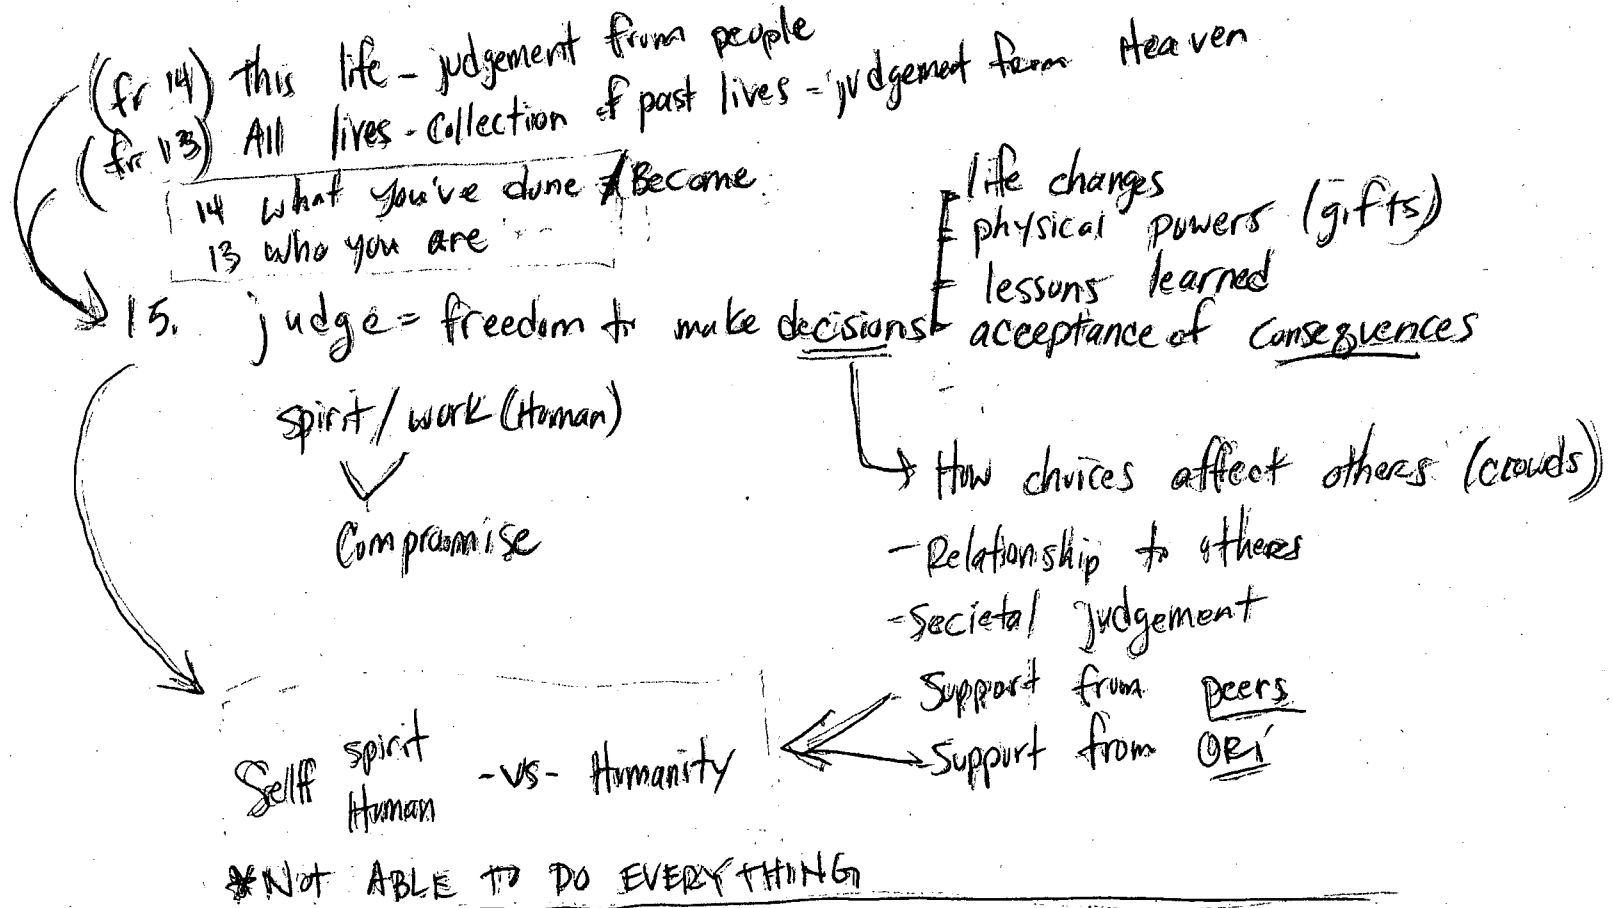 (fr 14) This life - judgement from people
(fr 13) All lives - Collection of past lives - judgement from Heaven
14 what you've done / Become
13 who you are
- life changes
- physical powers (gifts)
- lessons learned
15. judge = freedom to make decisions - acceptance of consequences
spirit / work (Human)
Compromise
How choices affect others (crowds)
- Relationship to others
- Societal judgement
- Support from peers
- Support from ORí
Self spirit Human - vs - Humanity
* NOT ABLE TO DO EVERYTHING